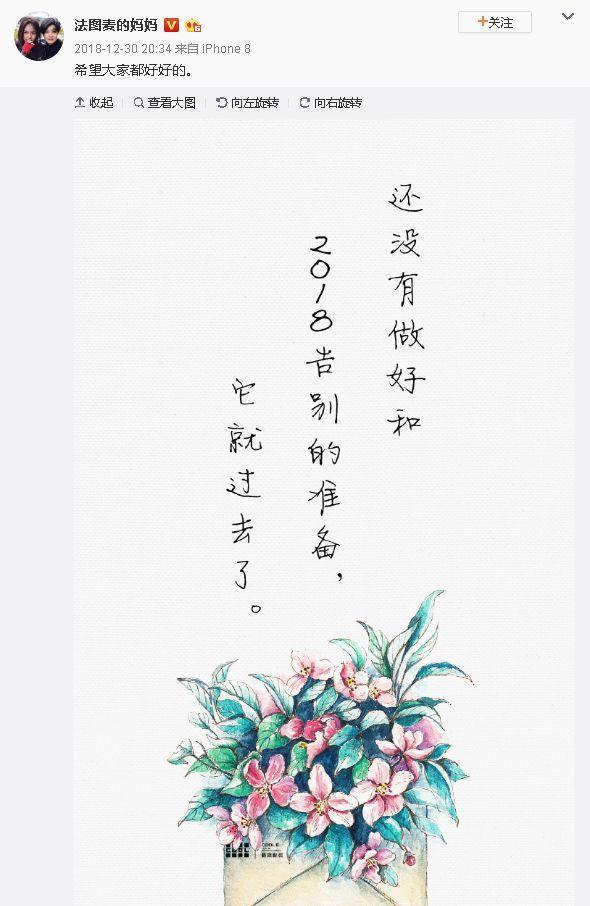 法图麦的妈妈
+关注
2018-12-30 20:34 来自 iPhone 8
希望大家都好好的。
收起
查看大图
向左旋转
向右旋转
还没有做好和
2018告别的准备，
它就过去了。